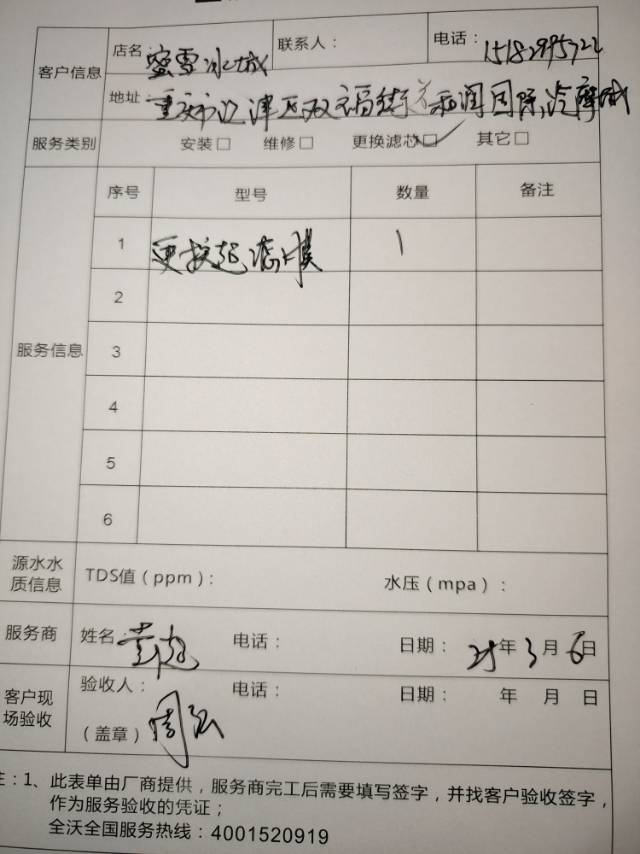 客户信息 店名 蜜雪冰城 联系人： 电话：15182995722
地址：重庆市江津区双福街 和润国际汽摩城
服务类别 安装□ 维修□ 更换滤芯□✓ 其它□
服务信息 序号 型号 数量 备注
1 更换超滤膜 1
2
3
4
5
6
源水水质信息 TDS值（ppm）： 水压（mpa）：
服务商 姓名 电话： 日期： 25年3月6日
客户现场验收 验收人： 电话： 日期： 年 月 日
（盖章）
注：1、此表单由厂商提供，服务商完工后需要填写签字，并找客户验收签字，
作为服务验收的凭证；
全沃全国服务热线：4001520919